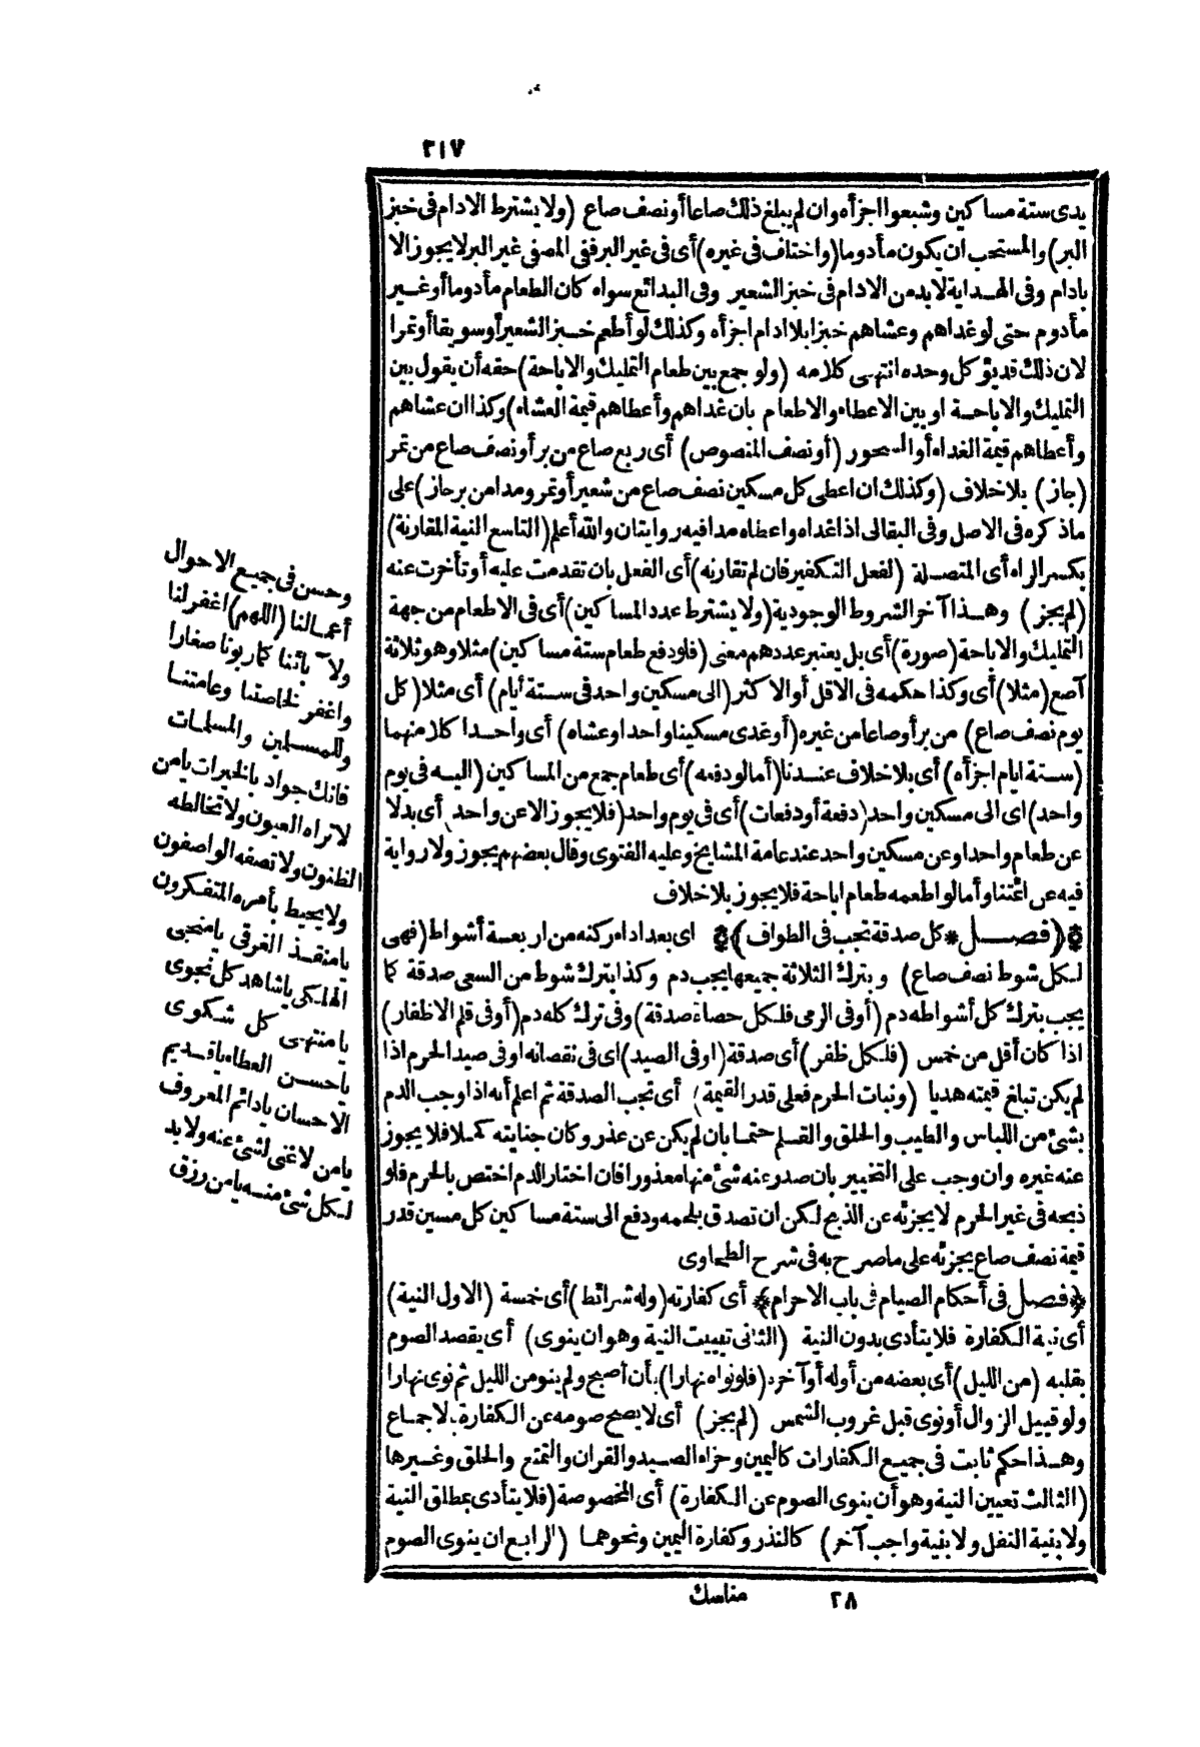 ٢١٧
يدى ستة مساكين وشبعوا اجزأه وان لم يبلغ ذلك صاعا أو نصف صاع (ولا يشترط الادام فى خبز
البر) والمستحب ان يكون مأدوما (واختلف فى غيره) أى فى غير البر ففى المصفى غير البر لا يجوز الا
بادام وفى الهداية لا بد من الادام فى خبز الشعير وفى البدائع سواء كان الطعام مأدوما أو غير
مأدوم حتى لو غداهم وعشاهم خبزا بلا ادام اجزأه وكذلك لو أطعم خبز الشعير أو سويقا أو تمرا
لان ذلك قد يؤكل وحده انتهى كلامه (ولو جمع بين طعام التمليك والاباحة) حقه أن يقول بين
التمليك والاباحة او بين الاعطاء والاطعام بان غداهم وأعطاهم قيمة العشاء) وكذا ان عشاهم
وأعطاهم قيمة الغداء أو السحور (أو نصف المنصوص) أى ربع صاع من بر أو نصف صاع من تمر
(جاز) بلا خلاف (وكذلك ان اعطى كل مسكين نصف صاع من شعير أو تمر ومدا من بر جاز) على
ماذكره فى الاصل وفى البقالى اذا غداه واعطاه مدا فيه روايتان والله أعلم (التاسع النية المقارنة)
بكسر الراء أى المتصلة (لفعل التكفير فان لم تقارنه) أى الفعل بان تقدمت عليه أو تأخرت عنه
(لم يجز) وهذا آخر الشروط الوجودية (ولا يشترط عدد المساكين) أى فى الاطعام من جهة
التمليك والاباحة (صورة) أى بل يعتبر عددهم معنى (فلو دفع طعام ستة مساكين) مثلا وهو ثلاثة
آصع (مثلا) أى وكذا حكمه فى الاقل أو الاكثر (الى مسكين واحد فى ستة أيام) أى مثلا (كل
يوم نصف صاع) من بر أو صاعا من غيره (أو غدى مسكينا واحدا وعشاه) أى واحدا كلا منهما
(ستة ايام اجزأه) أى بلا خلاف عندنا (أما لو دفعه) أى طعام جمع من المساكين (اليه فى يوم
واحد) اى الى مسكين واحد (دفعة أو دفعات) أى فى يوم واحد (فلا يجوز الا عن واحد) أى بدلا
عن طعام واحد او عن مسكين واحد عند عامة المشايخ وعليه الفتوى وقال بعضهم يجوز ولا رواية
فيه عن ائمتنا وأما لو اطعمه طعام اباحة فلا يجوز بلا خلاف
﴿(فصل * كل صدقة تجب فى الطواف)﴾ اى بعد اداء ركنه من اربعة أشواط (فهى
لكل شوط نصف صاع) وبترك الثلاثة جميعها يجب دم وكذا بترك شوط من السعى صدقة كما
يجب بترك كل أشواطه دم (أو فى الرمى فلكل حصاة صدقة) وفى ترك كله دم (أو فى قلم الاظفار)
اذا كان أقل من خمس (فلكل ظفر) أى صدقة (او فى الصيد) اى فى نقصانه او فى صيد الحرم اذا
لم يكن تبلغ قيمته هديا (ونبات الحرم فعلى قدر القيمة) أى تجب الصدقة ثم اعلم أنه اذا وجب الدم
بشئ من اللباس والطيب والحلق والقلم حتما بان لم يكن عن عذر وكان جنايته كملا فلا يجوز
عنه غيره وان وجب على التخيير بان صدر عنه شئ منها معذورا فان اختار الدم اختص بالحرم فلو
ذبحه فى غير الحرم لا يجزئه عن الذبح لكن ان تصدق بلحمه ودفع الى ستة مساكين كل مسين قدر
قيمة نصف صاع يجزئه على ما صرح به فى شرح الطحاوى
﴿فصل فى أحكام الصيام فى باب الاحرام﴾ أى كفارته (وله شرائط) أى خمسة (الاول النية)
أى نية الكفارة فلا يتأدى بدون النية (الثانى تبييت النية وهو ان ينوى) أى يقصد الصوم
بقلبه (من الليل) أى بعضه من أوله أو آخره (فلو نواه نهارا) بأن أصبح ولم ينو من الليل ثم نوى نهارا
ولو قبيل الزوال أو نوى قبل غروب الشمس (لم يجز) أى لا يصح صومه عن الكفارة بالاجماع
وهذا حكم ثابت فى جميع الكفارات كاليمين وجزاء الصيد والقران والتمتع والحلق وغيرها
(الثالث تعيين النية وهو أن ينوى الصوم عن الكفارة) أى المخصوصة (فلا يتأدى بمطلق النية
ولا بنية النفل ولا بنية واجب آخر) كالنذر وكفارة اليمين ونحوهما (الرابع ان ينوى الصوم
٢٨ مناسك
وحسن فى جميع الاحوال
أعمالنا (اللهم) اغفر لنا
ولآبائنا كما ربونا صغارا
واغفر لخاصتنا وعامتنا
وللمسلين والمسلمات
فانك جواد بالخيرات يا من
لا تراه العيون ولا تخالطه
الظنون ولا تصفه الواصفون
ولا يحيط بأمره المتفكرون
يا منقذ الغرقى يا منجى
الهلكى يا شاهد كل نجوى
يا منتهى كل شكوى
يا حسن العطاء يا قديم
الاحسان يا دائم المعروف
يا من لا غنى لشئ عنه ولا بد
لكل شئ منه يا من رزق